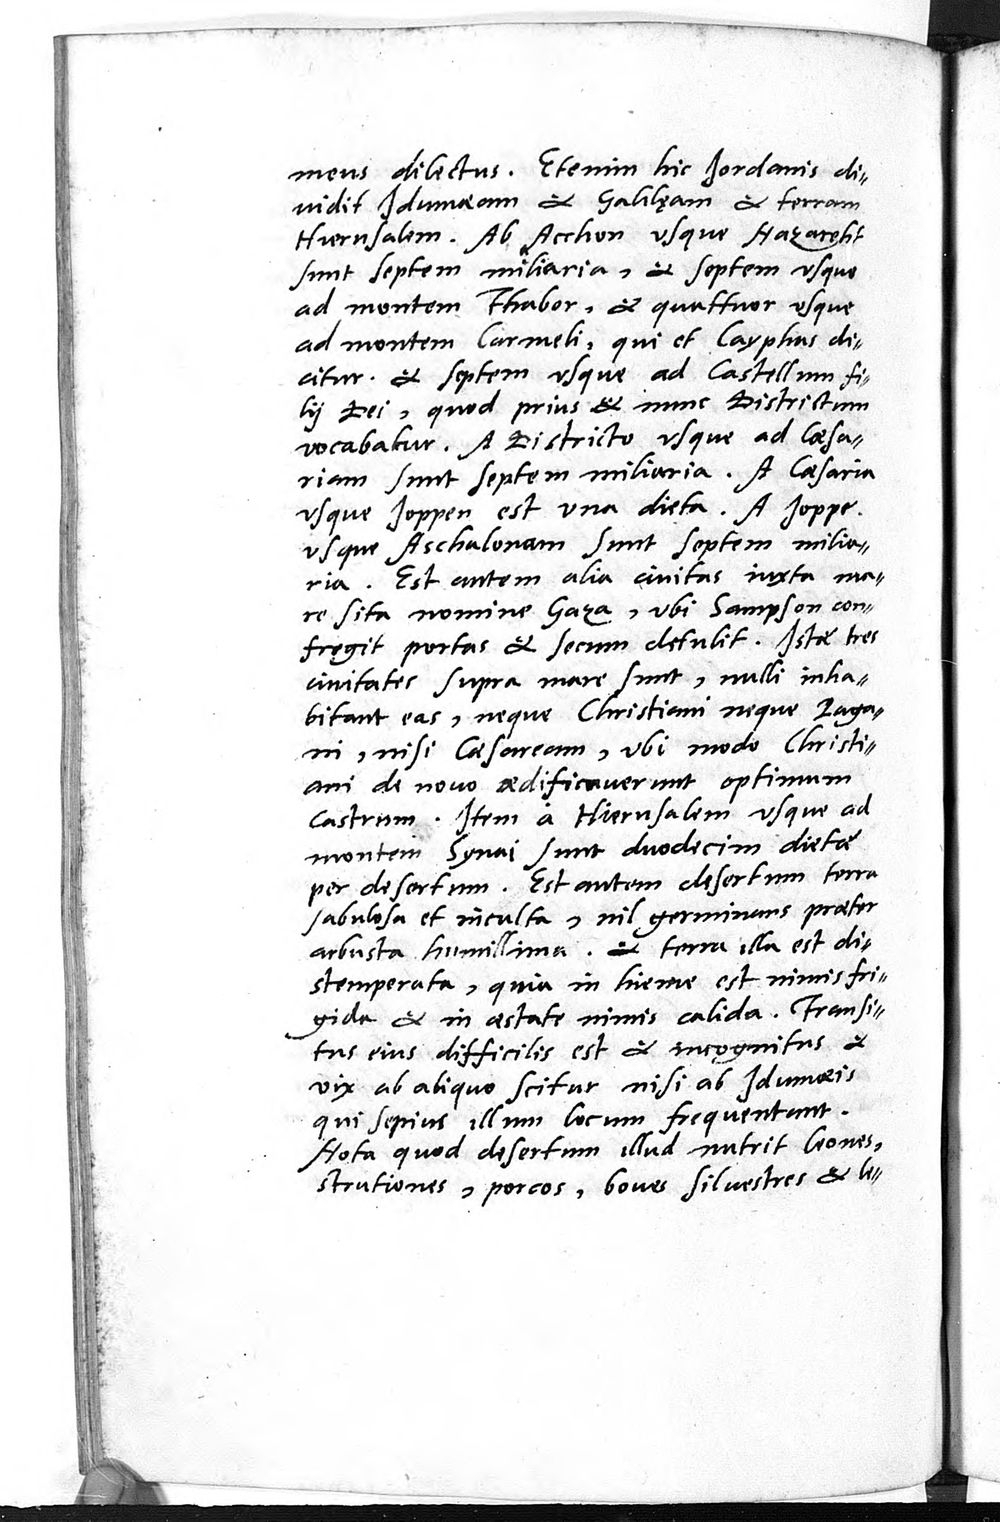 meus dilectus. Etenim hic Jordanis di〃
uidit Jdumæam & Galilęam & terram
Hierusalem. Ab Acchon vsque Nazareht
sunt septem miliaria, & septem vsque
ad montem Thabor, & quattuor vsque
ad montem Carmeli, qui et Cayphas di〃
citur. & septem vsque ad Castellum fi〃
lij Dei, quod prius & nunc Districtum
vocabatur. A Districto vsque ad Cæsa〃
riam sunt septem miliaria. A Cæsaria
vsque Joppen est vna dieta. A Joppe.
vsque Aschalonam sunt septem milia〃
ria. Est autem alia ciuitas iuxta ma〃
re sita nomine Gaza, vbi Sampson con〃
fręgit portas & secum detulit. Istæ tres
ciuitates supra mare sunt, nulli inha〃
bitant eas, neque Christiani neque Paga〃
ni, nisi Cæsaream, vbi modo Christi〃
ani de nouo ædificauerunt optimum
Castrum. Item à Hierusalem vsque ad
montem Synai sunt duodecim dietæ
per desertum. Est autem desertum terra
sabulosa et inculta, nil germinans præter
arbusta humillima. & terra illa est di〃
stemperata, quia in hieme est nimis fri〃
gida & in æstate nimis calida. Transi〃
tus eius difficilis est & incognitus &
vix ab aliquo scitur nisi ab Jdumæis
qui sepius illum locum frequentant.
Nota quod desertum illud nutrit leones,
strutiones, porcos, boues siluestres & le〃